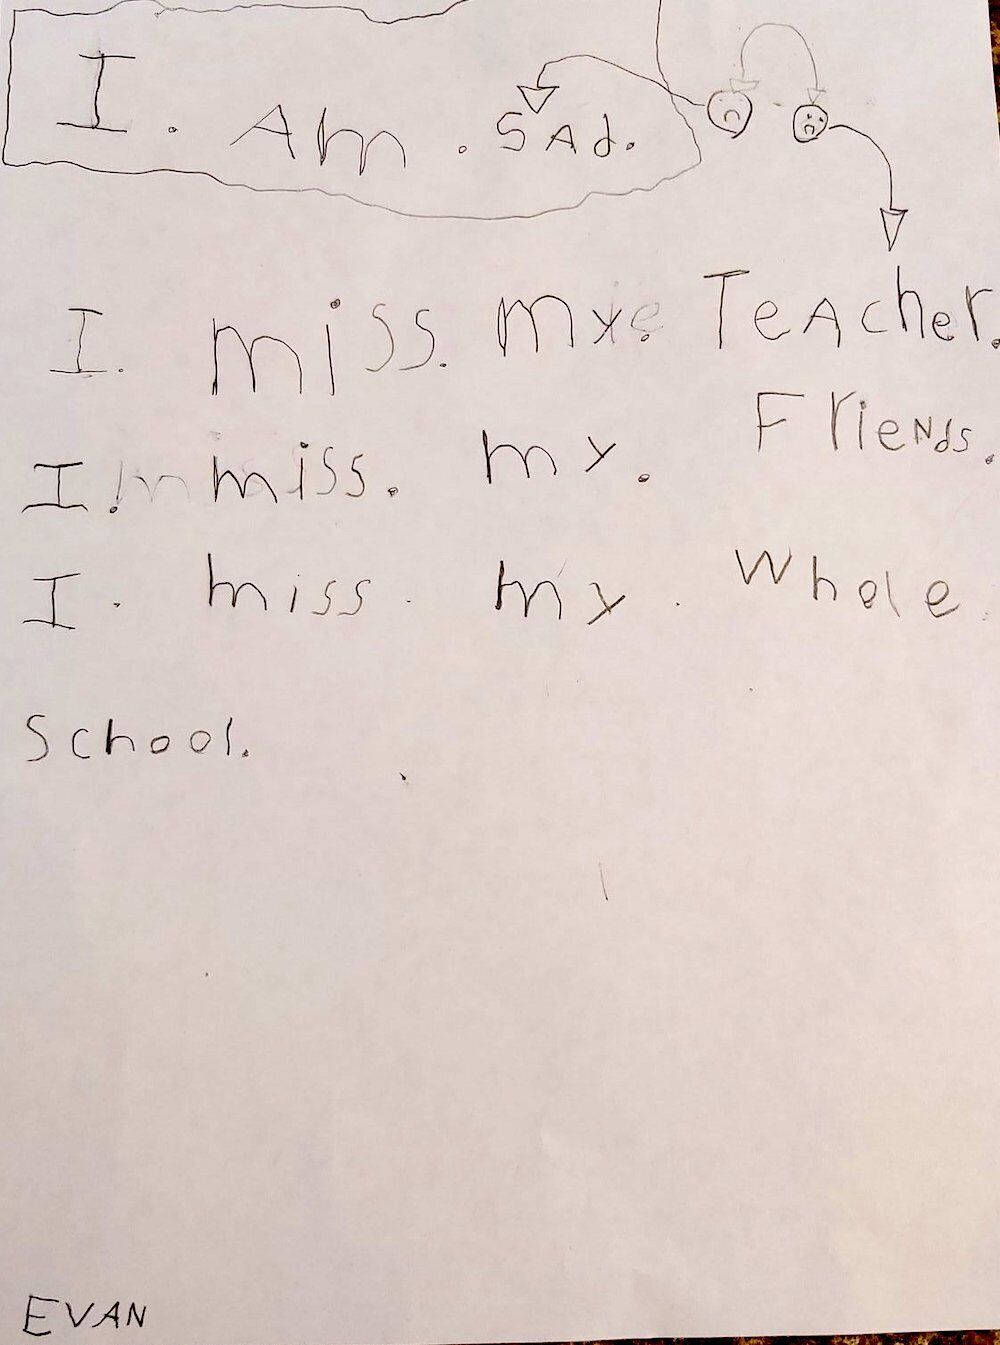 I. Am. SAd.
I. miss. my. TeAcher.
I. miss. my. FrieNds.
I. miss. my. Whole.
School.
EVAN